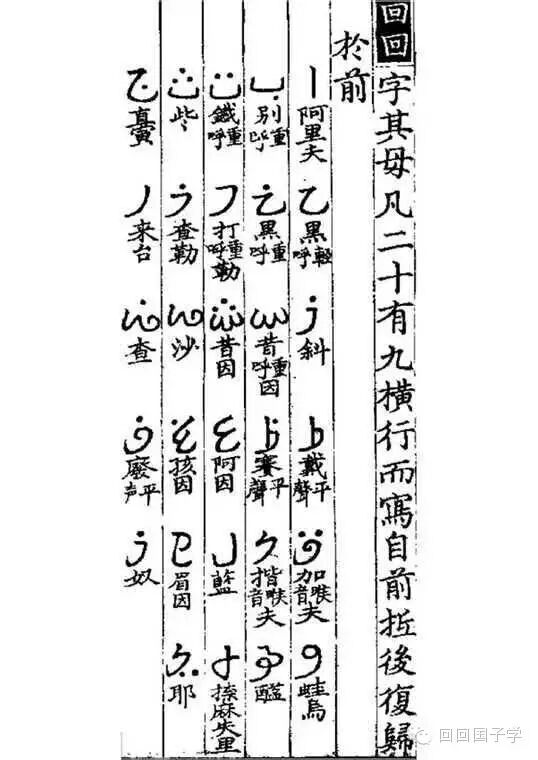 回回字其母凡二十有九橫行而寫自前抵後復歸
於前
ا 阿里夫 ح 黑輕呼 ز 斜 ط 戴平聲 ق 加喉音夫 و 蛙烏
ب 别重呼 خ 黑重呼 س 昔重呼因 ظ 賽平聲 ک 揩喉音夫 ه 醯
ت 鐵重呼 د 打重呼勒 ش 昔因 ع 阿因 ل 藍 麻失里
ث 些 ذ 查勒 ص 沙 غ 孩因 م 眉因 ي 耶
ج ر 来台 ض 查 ف 廢平声 ن 奴
回回国子学